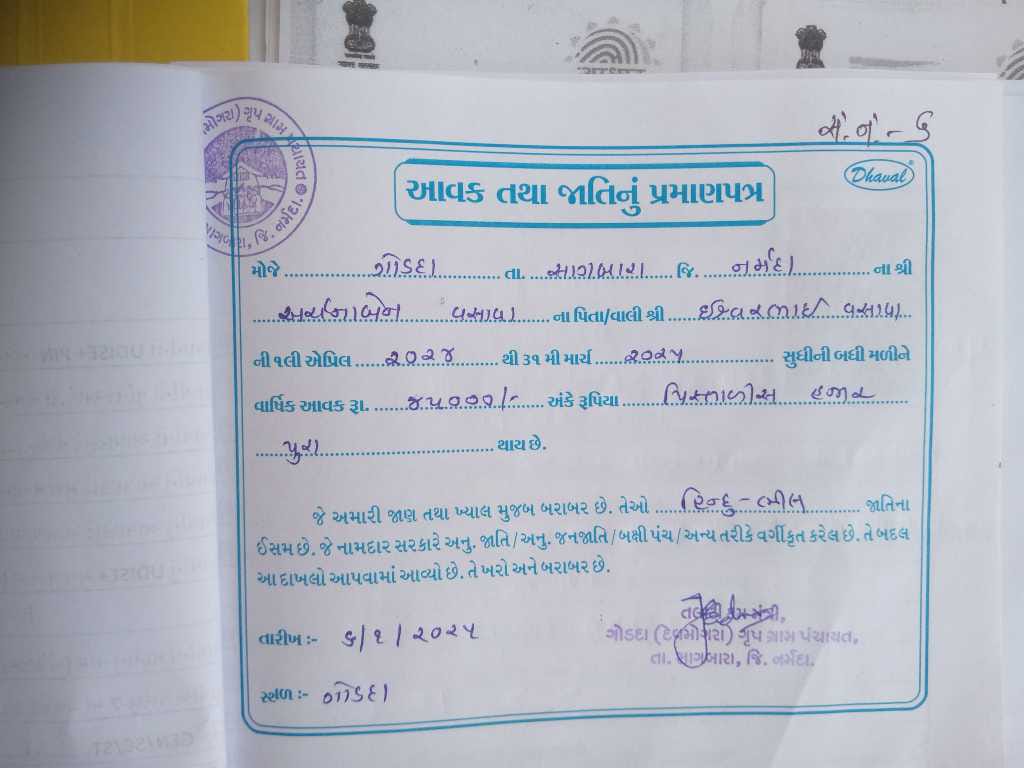 સં. નં. - ૬
Dhaval
આવક તથા જાતિનું પ્રમાણપત્ર
મોજે ગોડદા તા. સાગબારા જિ. નર્મદા ના શ્રી
અર્ચનાબેન વસાવા ના પિતા/વાલી શ્રી ઈશ્વરભાઈ વસાવા
ની ૧લી એપ્રિલ ૨૦૨૪ થી ૩૧ મી માર્ચ ૨૦૨૫ સુધીની બધી મળીને
વાર્ષિક આવક રૂા. ૪૫૦૦૦/- અંકે રૂપિયા પિસ્તાળીસ હજાર
પુરા થાય છે.
જે અમારી જાણ તથા ખ્યાલ મુજબ બરાબર છે. તેઓ હિન્દુ - ભીલ જાતિના
ઈસમ છે. જે નામદાર સરકારે અનુ. જાતિ/અનુ. જનજાતિ/બક્ષી પંચ/અન્ય તરીકે વર્ગીકૃત કરેલ છે. તે બદલ
આ દાખલો આપવામાં આવ્યો છે. તે ખરો અને બરાબર છે.
તલાટી કમ મંત્રી,
તારીખ :- ૬/૧/૨૦૨૫
ગોડદા (દેવમોગરા) ગૃપ ગ્રામ પંચાયત,
તા. સાગબારા, જિ. નર્મદા.
સ્થળ :- ગોડદા